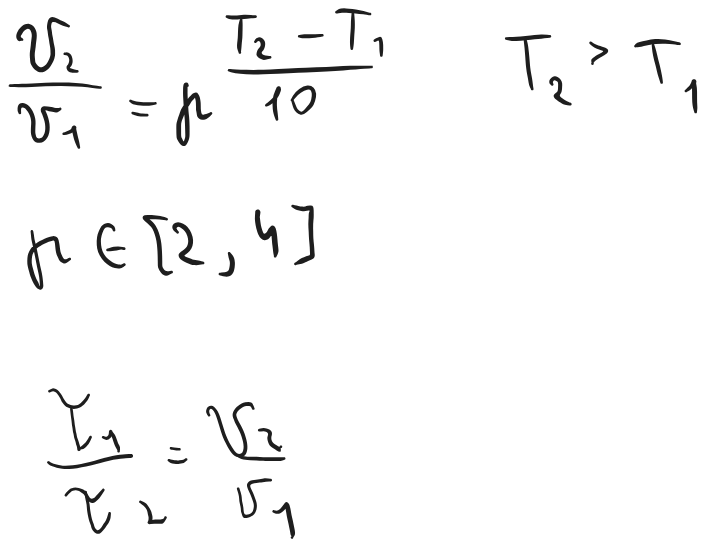 v₂/v₁ = γ^((T₂ − T₁)/10)    T₂ > T₁
γ ∈ [2, 4]
τ₁/τ₂ = v₂/v₁